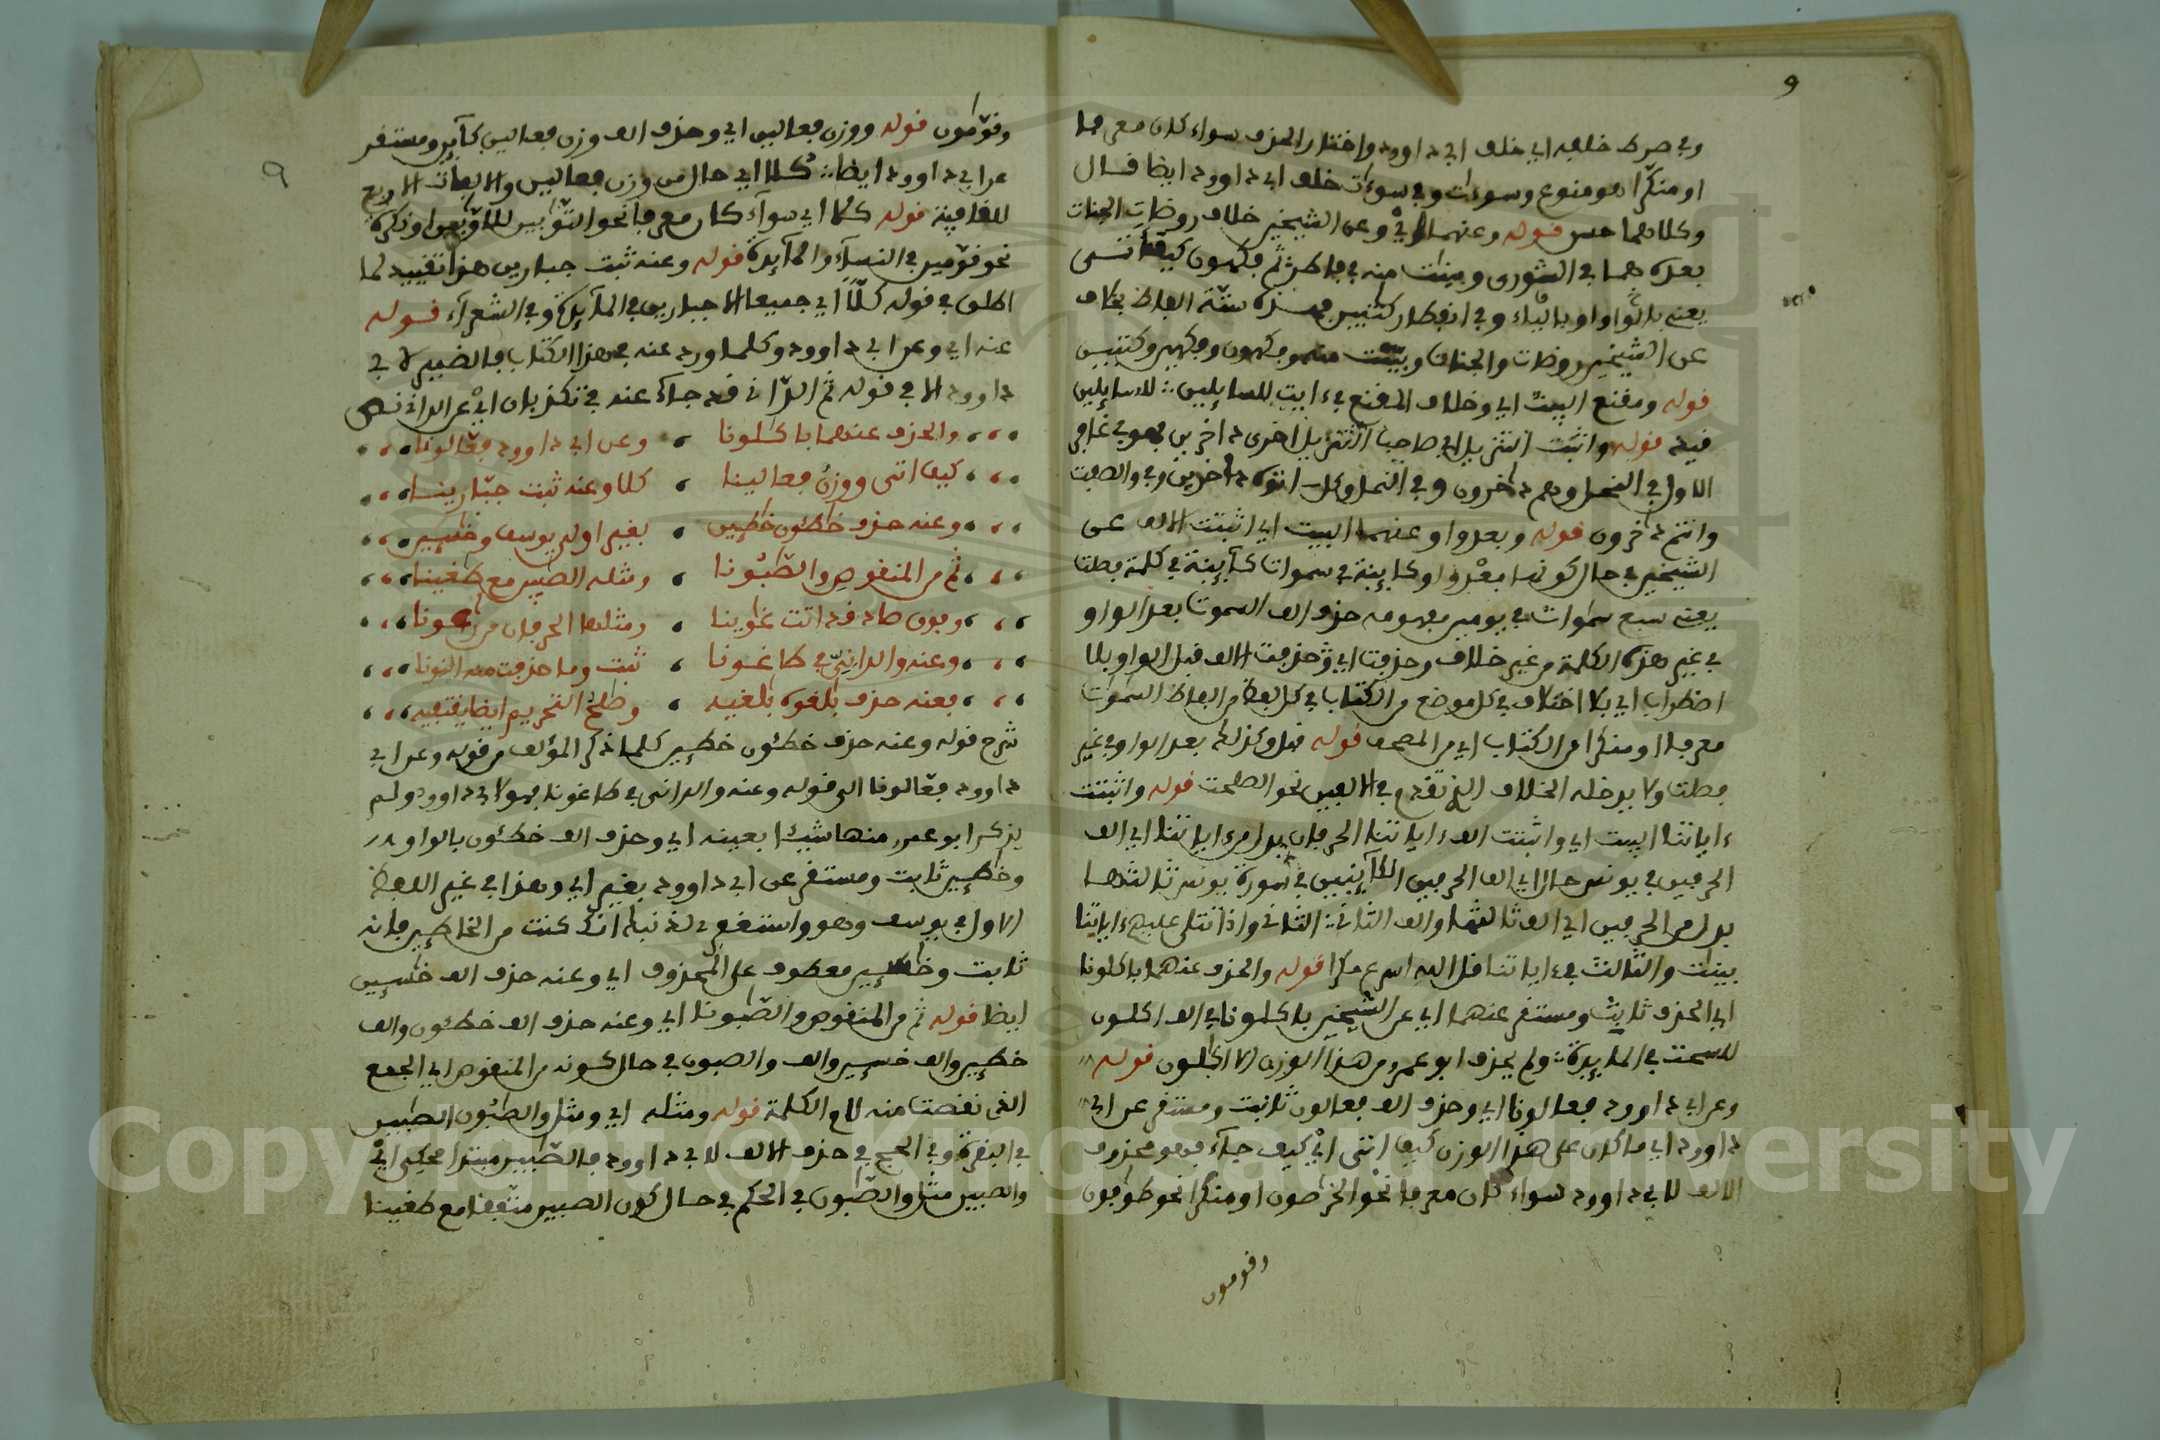 9
وفي صرط خلف اي خلف ابي داوود واختار الحذف سواء كان معرفا
او منكرا هو منوع وسوءت وفي سوءات خلف ابي داوود ايضا قال
وكلاهما حسن قوله وعنهما اي وعن الشيخين خلاف روضات الجنات
بعده هما في الشورى وبينت منه في فاطر ثم فكهون كيف اتى
يعني بالواو او بالياء وفي انفطار كتبين فهذه ستة الفاظ بخلاف
عن الشيخين روضات والجنات وبينت منه وفكهون وفكهين وكتبين
قوله ومقنع البيت اي وخلاف المقنع في ءايت للسايلين للسايلين
فيه قوله واثبت التنزيل اي صاحب التنزيل اخرى داخرين فهو في غافر
الاول في النحل وهم داخرون وفي النمل وكل اتوه داخرين وفي والصفت
وانتم داخرون قوله وبعد واو عنهما البيت اي اثبتت الالف عن
الشيخين في حال كونها بعد واو كاينة في سموات كاينة في كلمة فصلت
يعني سبع سموات في يومين مفهومه حذف الف السموات بعد الواو
في غير هذه الكلمة من غير خلاف وحذفت اي وحذفت الالف قبل الواو بلا
اضطراب اي بلا اختلاف في كل موضع من الكتاب في كل لفظ من الفاظ السموات
معرفا او منكرا من الكتاب اي من المصحف قوله قيل وكذلك بعد الواو في غير
فصلت ولا يدخله الخلاف الذي تقدم في الالفين نحو الصلحت قوله واثبتت
ءاياتنا البيت اي واثبتت الف ءاياتنا الحرفان بدل من ءاياتنا اي الف
الحرفين في يونس حال اي الف الحرفين الكاينين في سورة يونس ثالثها
بدل من الحرفين اي الف ثالثها والف الثاني الثاني واذا تتلى عليهم ءاياتنا
بينت والثالث في ءاياتنا قل الله اسرع مكرا قوله والحذف عنهما باكلونا
اي الحذف ثابت ومستقر عنهما اي عن الشيخين باكلونا في الف اكلون
للسحت في المايدة ولم يحذف ابو عمرو من هذا الوزن الا اكلون قوله
وعن ابي داوود فعالونا اي وحذف الف فعالون ثابت ومستقر عن ابي
داوود اي ما كان على هذا الوزن كيف اتى اي كيف جآء فهو محذوف
الالف لابي داوود سواء كان معرفا نحو الخرصون او منكرا نحو طوافون
وقومون
9
وقومون قوله ووزن فعالين اي وحذف الف وزن فعالين كآين ومستقر
عن ابي داوود ايضا كلا اي حال من وزن فعالين والالفات الاربع
للقافية قوله كلا اي سوآء كان معرفا نحو التوابين للاوابين او نكرة
نحو قومين في النسآء والمآيدة قوله وعنه ثبت جبارين هذا تقييد لما
اطلق في قوله كلا اي جميعا الا جبارين في المآيدة وفي الشعرآء قوله
عنه اي وعن ابي داوود وكلما ورد عنه في هذا الكتاب فالضمير لابي
داوود الا في قوله ثم الداني قد جآء عنه في تكذبان اي عن الداني نص
والحذف عنهما باكلونا وعن ابي داوود فعالونا
كيف اتى ووزن فعالينا كلا وعنه ثبت جبارينا
وعنه حذف خطئون خطئين بغير اولى يوسف وخسئين
ثم من المنقوص والصبونا ومثله الصبين مع طغينا
وفوق صاد قد اتت غوينا ومثلها الحرفان من رعونا
وعنه والداني في طاغونا ثبت وما حذفت منه النونا
فعنه حذف بلغوه بلغيه وصلح التحريم ايضا يقتفيه
شرح قوله وعنه حذف خطئون خطئين كلما ذكر المؤلف من قوله وعن ابي
داوود فعالونا الى قوله وعنه والداني في طاغونا فهو لابي داوود ولم
يذكر ابو عمرو منها شيئا بعينه اي وحذف الف خطئون بالواو
وخطئين ثابت ومستقر عن ابي داوود بغير اي وهذا في غير اللفظ
الاول في يوسف وهو واستغفري لذنبك انك كنت من الخاطئين فانه
ثابت وخسئين معطوف على المحذوف اي وعنه حذف الف خسئين
ايضا قوله ثم من المنقوص والصبونا اي وعنه حذف الف خطئون والف
خطئين والف خسئين والف والصبون في حال كونه من المنقوص اي الجمع
الذي نقصت منه لام الكلمة قوله ومثله اي ومثل والصبون الصبين
في البقرة وفي الحج في حذف الالف لابي داوود فالصبين مبتدا محكي اي
والصبين مثل والصبون في الحكم في حال كون الصبين متفقا مع طغينا